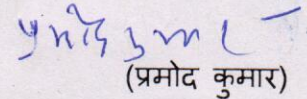 प्रमोद कुमार
(प्रमोद कुमार)